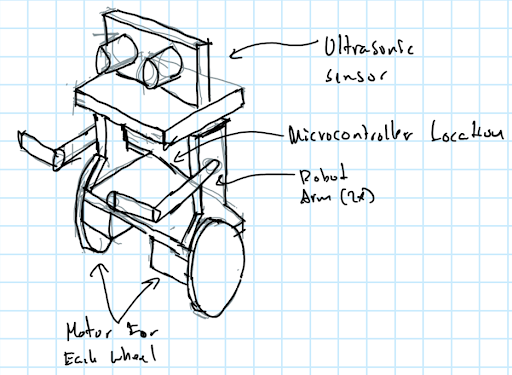 Ultrasonic
Sensor
Microcontroller Location
Robot
Arm (2x)
Motor For
Each Wheel